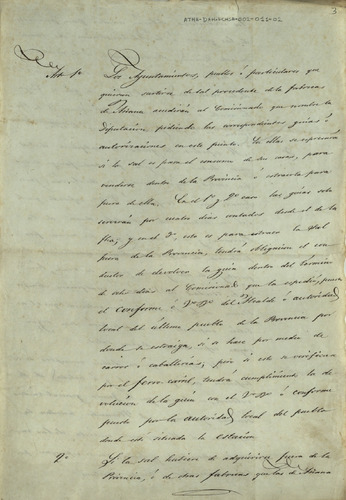 ATHA-DAH-ACHA-002-011-02
3
Art. 1º Los Ayuntamientos, pueblos ó particulares que
quieran surtirse de sal procedente de la fabricas
de Añana acudirán al Comisionado que nombre la
Diputacion, pidiendo las correspondientes guias ó
autorizaciones en este punto. En ellas se espresará
si la sal es para el consumo de su casa, para
venderse dentro de la Provincia ó estraerla para
fuera de ella. En el 1º y 2º caso las guias solo
servirán por cuatro dias contados desde el de la
fha, y en el 3º, esto es para estraer la sal
fuera de la Provincia, tendrá obligacion el con
ductor de devolver la guia dentro del término
de ocho dias al Comisionado que la espedió, puesto
el conforme ó Vº Bº del Alcalde ó autoridad
local del último pueblo de la Provincia por
donde se estraiga, si se hace por medio de
carros ó caballerias; pero si esto se verificára
por el ferro-carril, tendrá cumplimiento la de
volucion de la guia con el Vº Bº ó conforme
puesto por la autoridad local del pueblo
donde esté situada la estacion
2º Si la sal hubiere de adquirirse fuera de la
Provincia, ó de otras fabricas que las de Añana